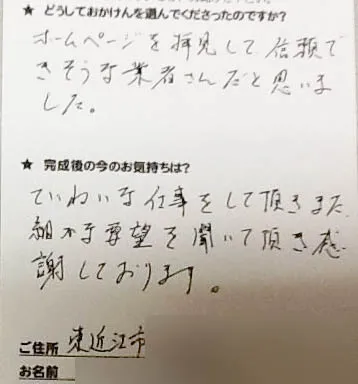 ★ どうしておかけんを選んでくださったのですか?
ホームページを拝見して信頼で
きそうな業者さんだと思いま
した。
★ 完成後の今のお気持ちは?
ていねいな仕事をして頂きまた
細かな要望を聞いて頂き感
謝しております。
ご住所 東近江市
お名前